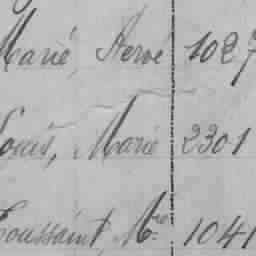 Marie, Hervé 1027
Louis, Marie 2301
Toussaint, M. 1041